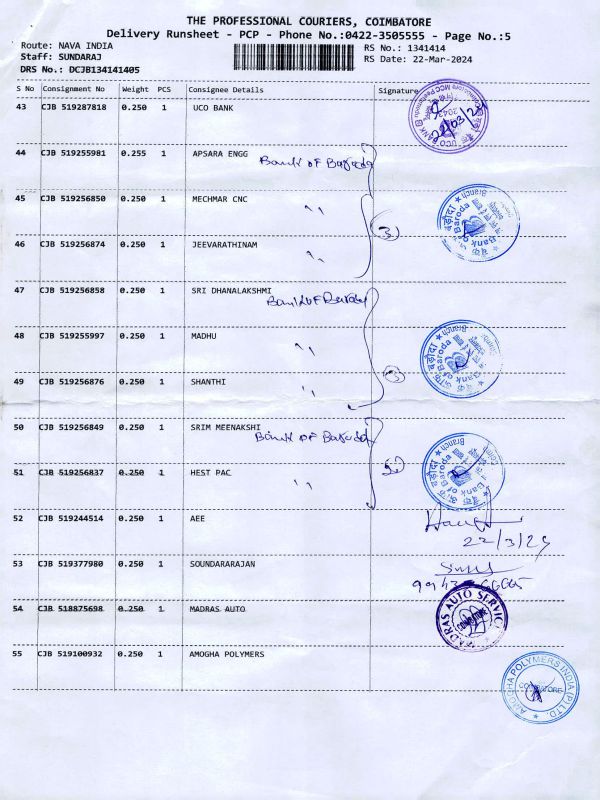 THE PROFESSIONAL COURIERS, COIMBATORE
Delivery Runsheet - PCP - Phone No.:0422-3505555 - Page No.:5
Route: NAVA INDIA RS No.: 1341414
Staff: SUNDARAJ RS Date: 22-Mar-2024
DRS No.: DCJB134141405
S No Consignment No Weight PCS Consignee Details Signature
43 CJB 519287818 0.250 1 UCO BANK
UCO BANK
22/03/24
44 CJB 519255981 0.255 1 APSARA ENGG
Bank of Baroda
45 CJB 519256850 0.250 1 MECHMAR CNC
" 3
बैंक ऑफ़ बड़ौदा
Bank of Baroda
Branch
46 CJB 519256874 0.250 1 JEEVARATHINAM
"
47 CJB 519256858 0.250 1 SRI DHANALAKSHMI
Bank of Baroda
48 CJB 519255997 0.250 1 MADHU
"
बैंक ऑफ़ बड़ौदा
Bank of Baroda
Branch
49 CJB 519256876 0.250 1 SHANTHI
" 3
50 CJB 519256849 0.250 1 SRIM MEENAKSHI
Bank of Baroda
51 CJB 519256837 0.250 1 HEST PAC
"
बैंक ऑफ़ बड़ौदा
Bank of Baroda
Branch
52 CJB 519244514 0.250 1 AEE
22/3/24
53 CJB 519377980 0.250 1 SOUNDARARAJAN
54 CJB 518875698 0.250 1 MADRAS AUTO
MADRAS AUTO SERVICE
COIMBATORE
55 CJB 519100932 0.250 1 AMOGHA POLYMERS
AMOGHA POLYMERS INDIA (P) LTD.
COIMBATORE